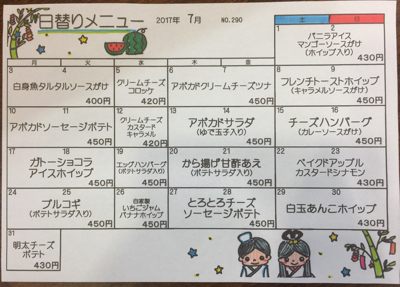 日替りメニュー 2017年 7月 NO.290
月 火 水 木 金 土 日
1 2
バニラアイス
マンゴーソースがけ
(ホイップ入り)
430円
3 4 5 6 7 8 9
白身魚タルタルソースがけ
400円
クリームチーズ
コロッケ
420円
アボカドクリームチーズツナ
450円
フレンチトーストホイップ
(キャラメルソースがけ)
450円
10 11 12 13 14 15 16
アボカドソーセージポテト
450円
クリームチーズ
カスタード
キャラメル
420円
アボカドサラダ
(ゆで玉子入り)
450円
チーズハンバーグ
(カレーソースがけ)
450円
17 18 19 20 21 22 23
ガトーショコラ
アイスホイップ
450円
エッグハンバーグ
(ポテトサラダ入り)
450円
から揚げ甘酢あえ
(ポテトサラダ入り)
450円
ベイクドアップル
カスタードシナモン
430円
24 25 26 27 28 29 30
プルコギ
(ポテトサラダ入り)
450円
自家製
いちごジャム
バナナホイップ
450円
とろとろチーズ
ソーセージポテト
450円
白玉あんこホイップ
430円
31
明太チーズ
ポテト
430円